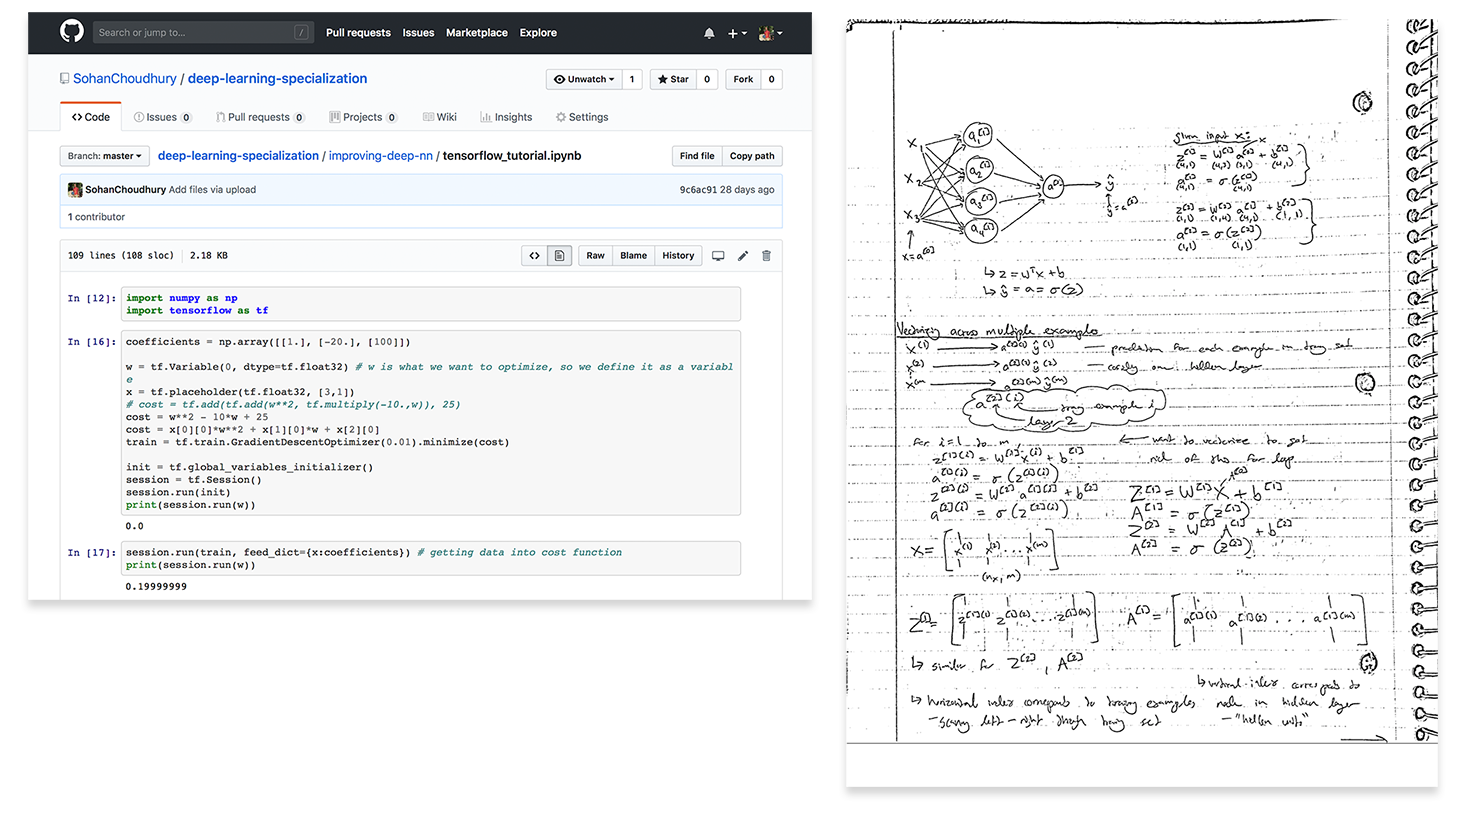 Search or jump to... /
Pull requests Issues Marketplace Explore
SohanChoudhury / deep-learning-specialization
Unwatch 1 Star 0 Fork 0
Code Issues 0 Pull requests 0 Projects 0 Wiki Insights Settings
Branch: master deep-learning-specialization / improving-deep-nn / tensorflow_tutorial.ipynb Find file Copy path
SohanChoudhury Add files via upload 9c6ac91 28 days ago
1 contributor
109 lines (108 sloc) 2.18 KB Raw Blame History
In [12]: import numpy as np
import tensorflow as tf
In [16]: coefficients = np.array([[1.], [-20.], [100]])
w = tf.Variable(0, dtype=tf.float32) # w is what we want to optimize, so we define it as a variabl
e
x = tf.placeholder(tf.float32, [3,1])
# cost = tf.add(tf.add(w**2, tf.multiply(-10.,w)), 25)
cost = w**2 - 10*w + 25
cost = x[0][0]*w**2 + x[1][0]*w + x[2][0]
train = tf.train.GradientDescentOptimizer(0.01).minimize(cost)
init = tf.global_variables_initializer()
session = tf.Session()
session.run(init)
print(session.run(w))
0.0
In [17]: session.run(train, feed_dict={x:coefficients}) # getting data into cost function
print(session.run(w))
0.19999999
x₁ a₁[1]
x₂ a₂[1]
x₃ a₃[1]
a₄[1]
a[2] ŷ
ŷ = a[2]
x = a[0]
↳ z = wᵀx + b
↳ ŷ = a = σ(z)
Given input x:
z[1] = W[1] a[0] + b[1]
(4,1) (4,3) (3,1) (4,1)
a[1] = σ(z[1])
(4,1) (4,1)
z[2] = W[2] a[1] + b[2]
(1,1) (1,4) (4,1) (1,1)
a[2] = σ(z[2])
(1,1) (1,1)
Vectorizing across multiple examples
x(1) → a[2](1) ŷ(1) — prediction for each example in training set
x(2) → a[2](2) ŷ(2) — only one hidden layer
x(m) → a[2](m) ŷ(m)
a[2](i) example i
layer 2
for i = 1 to m, ← want to vectorize to get
rid of this for loop
z[1](i) = W[1] x(i) + b[1]
a[1](i) = σ(z[1](i))
z[2](i) = W[2] a[1](i) + b[2]
a[2](i) = σ(z[2](i))
A[0]
Z[1] = W[1] X + b[1]
A[1] = σ(Z[1])
Z[2] = W[2] A[1] + b[2]
A[2] = σ(Z[2])
X = [x(1) x(2) ... x(m)]
(nx, m)
Z[1] = [z[1](1) z[1](2) ... z[1](m)] A[1] = [a[1](1) a[1](2) ... a[1](m)]
↳ similar for Z[2], A[2]
↳ vertical index corresponds to
node in hidden layer
— "hidden units"
↳ horizontal index corresponds to training examples
— scanning left - right through training set